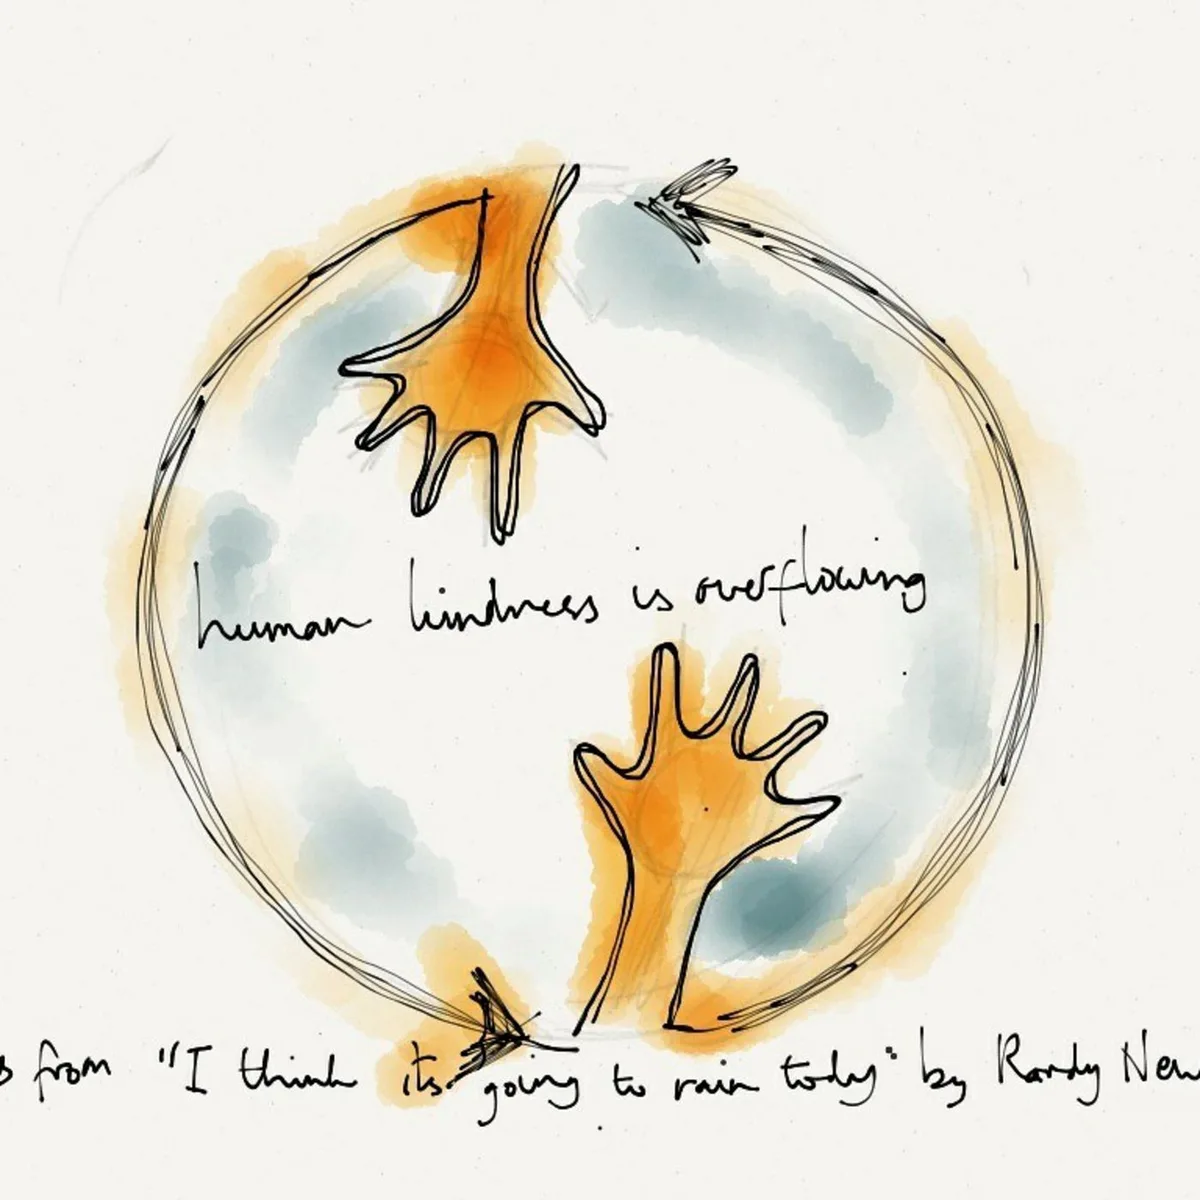 human kindness is overflowing
s from "I think its going to rain today" by Randy New